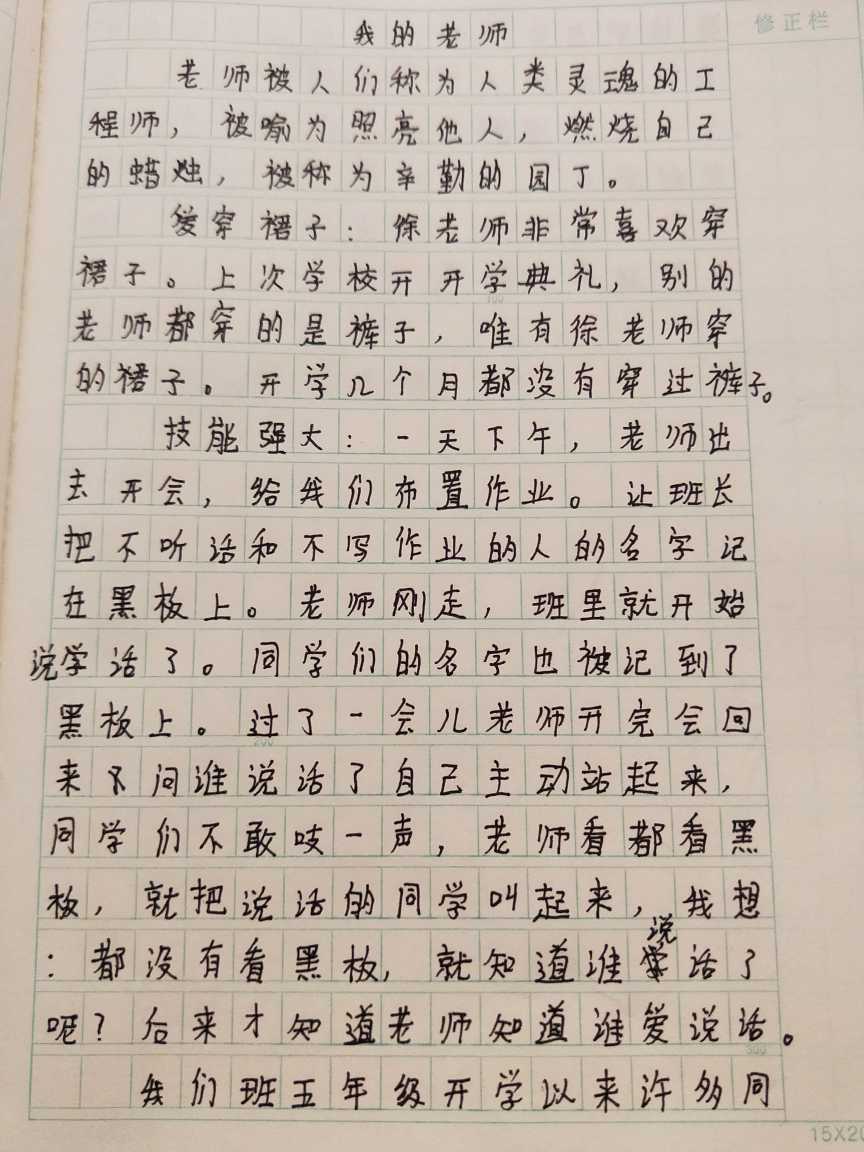 修正栏
我的老师
老师被人们称为人类灵魂的工
程师，被喻为照亮他人，燃烧自己
的蜡烛，被称为辛勤的园丁。
爱穿裙子：徐老师非常喜欢穿
裙子。上次学校开开学典礼，别的
老师都穿的是裤子，唯有徐老师穿
的裙子。开学几个月都没有穿过裤子。
技能强大：一天下午，老师出
去开会，给我们布置作业。让班长
把不听话和不写作业的人的名字记
在黑板上。老师刚走，班里就开始
说学话了。同学们的名字也被记到了
黑板上。过了一会儿老师开完会回
来不问谁说话了自己主动站起来，
同学们不敢吱一声，老师看都看黑
板，就把说话的同学叫起来，我想
：都没有看黑板，就知道谁说话了
呢？后来才知道老师知道谁爱说话。
我们班五年级开学以来许多同
15X20